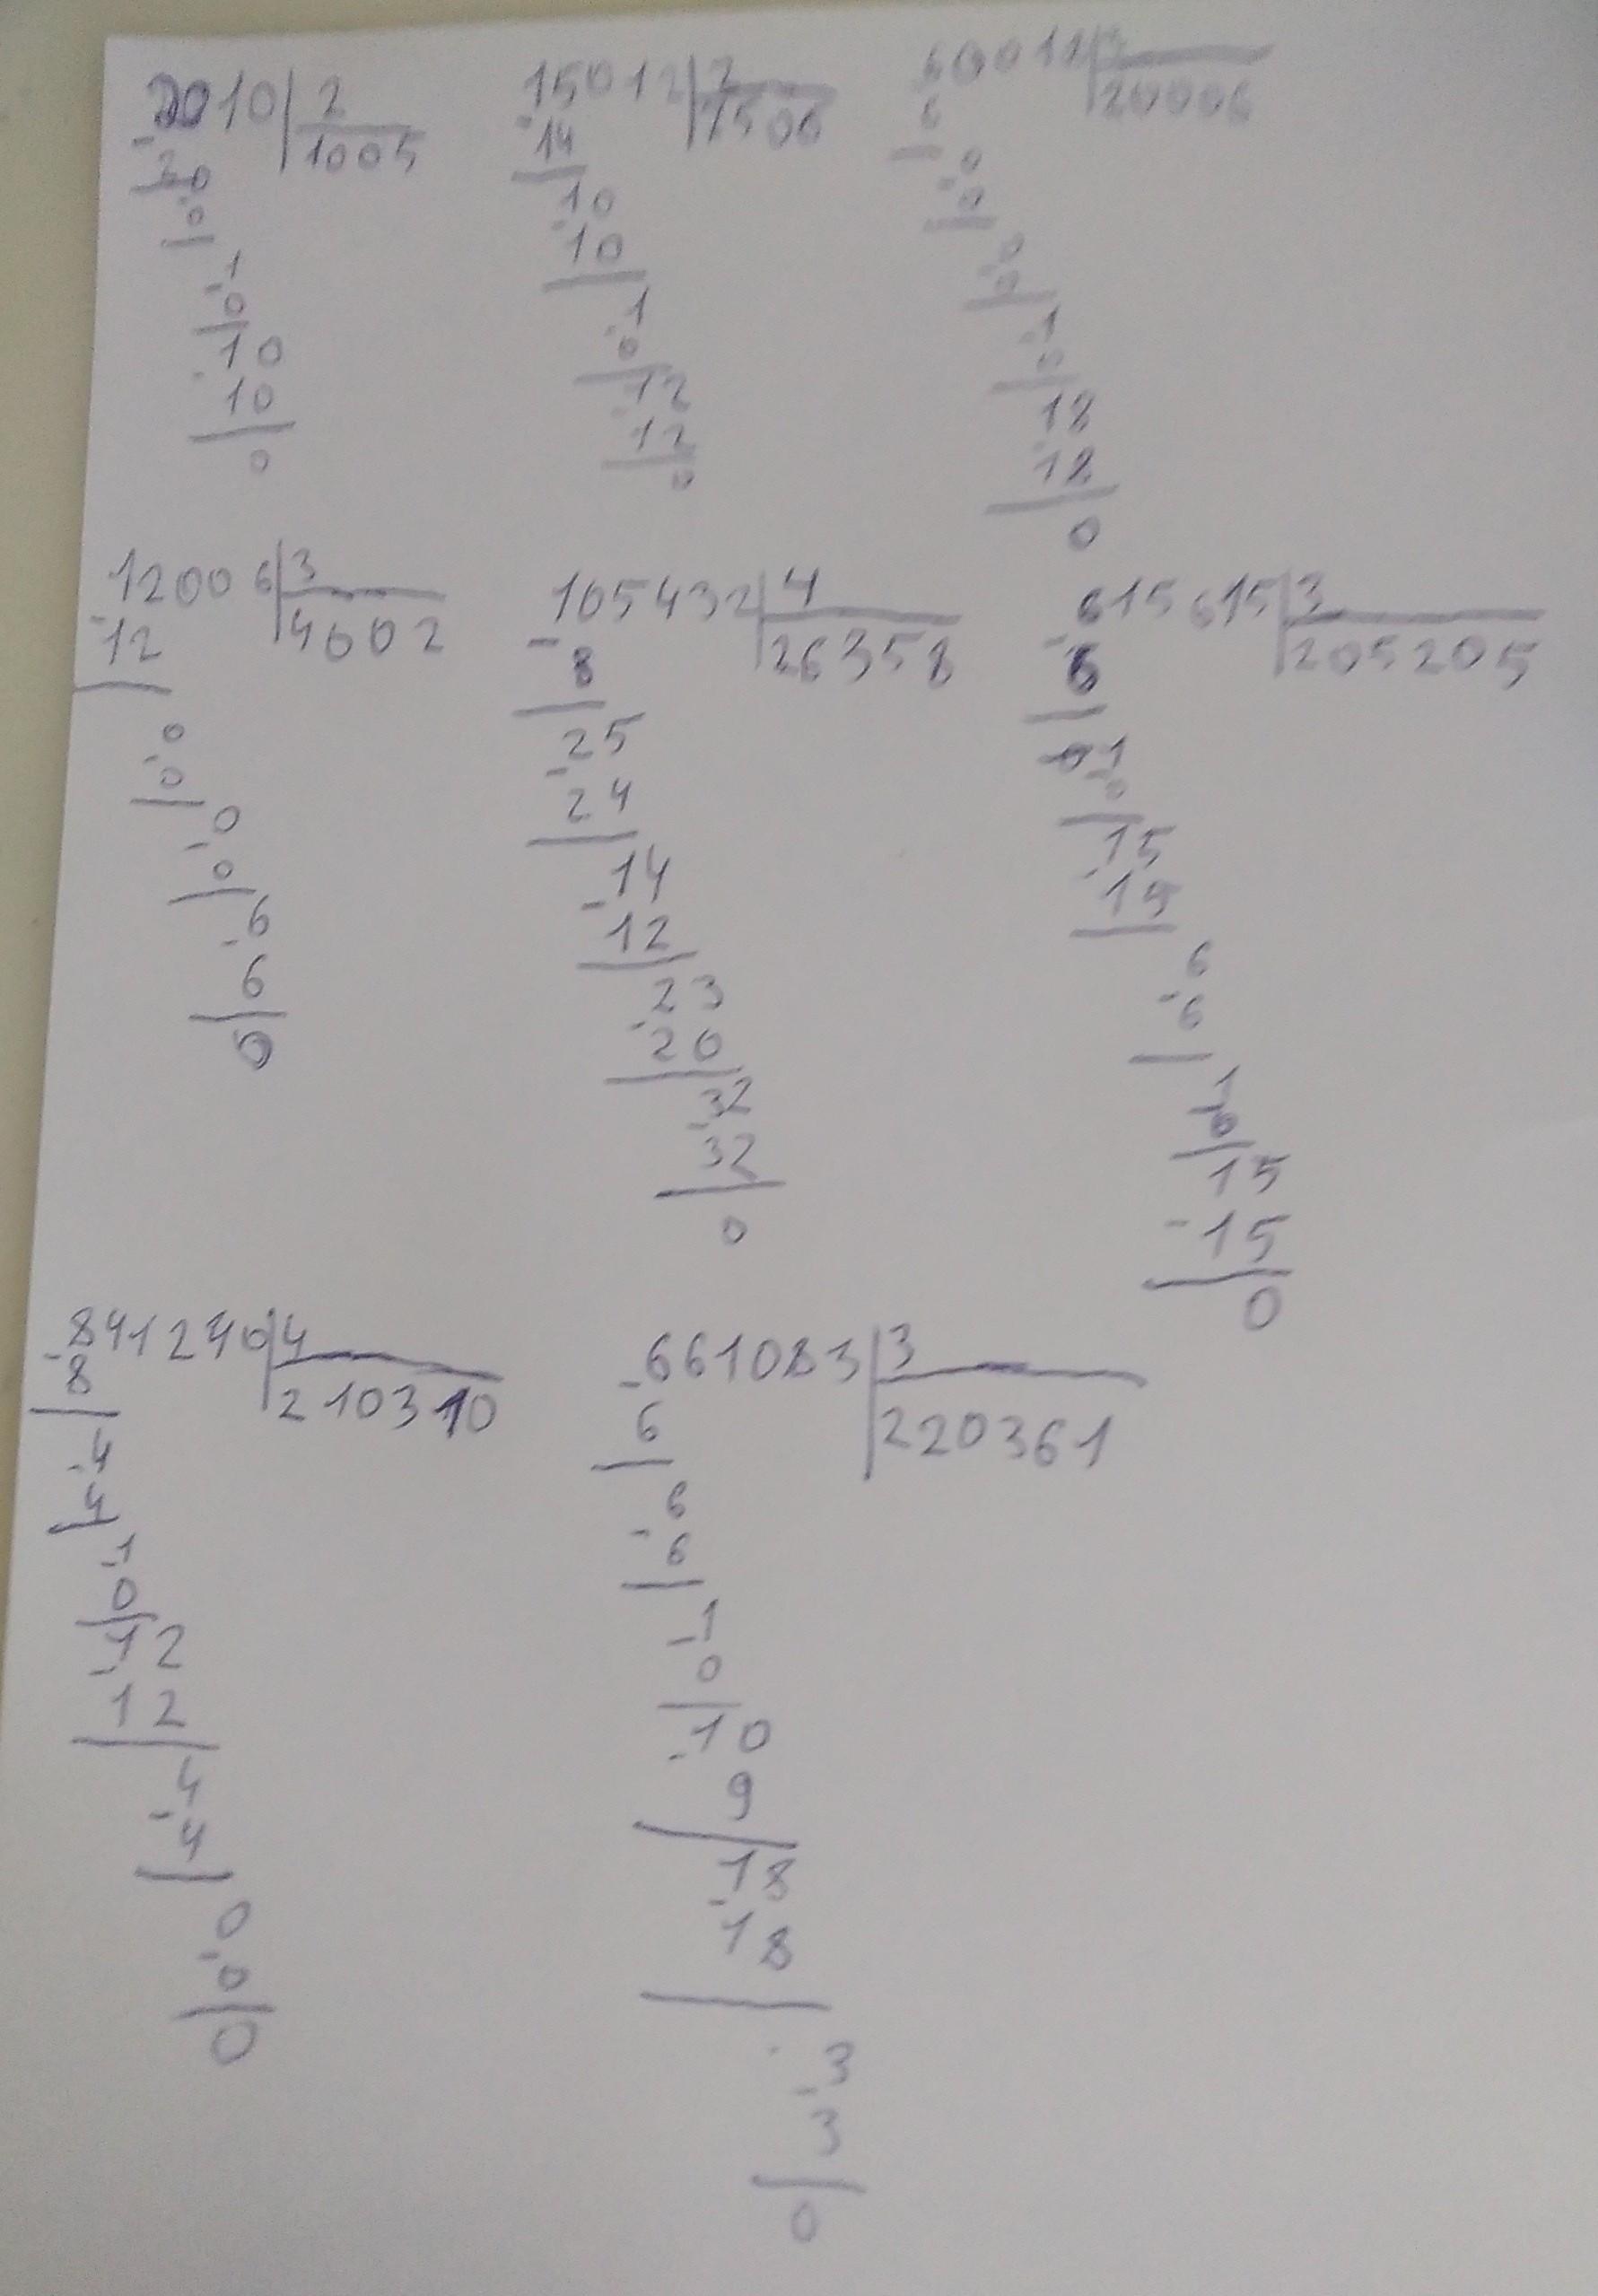 2010 2
1005
- 20
0
1
- 0
10
- 10
0
15012 2
7506
- 14
10
- 10
1
- 0
12
- 12
0
60012
20006
6
0
- 0
0
- 0
1
- 0
18
- 18
0
12006 3
4002
- 12
0
- 0
0
- 0
6
- 6
0
105432 4
26358
- 8
25
- 24
14
- 12
23
- 20
32
- 32
0
615615 3
205205
- 6
01
- 0
15
- 15
6
- 6
1
- 0
15
- 15
0
841240 4
210310
- 8
4
- 4
1
- 0
12
- 12
4
- 4
0
- 0
0
661083 3
220361
- 6
6
- 6
1
- 0
10
- 9
18
- 18
3
- 3
0